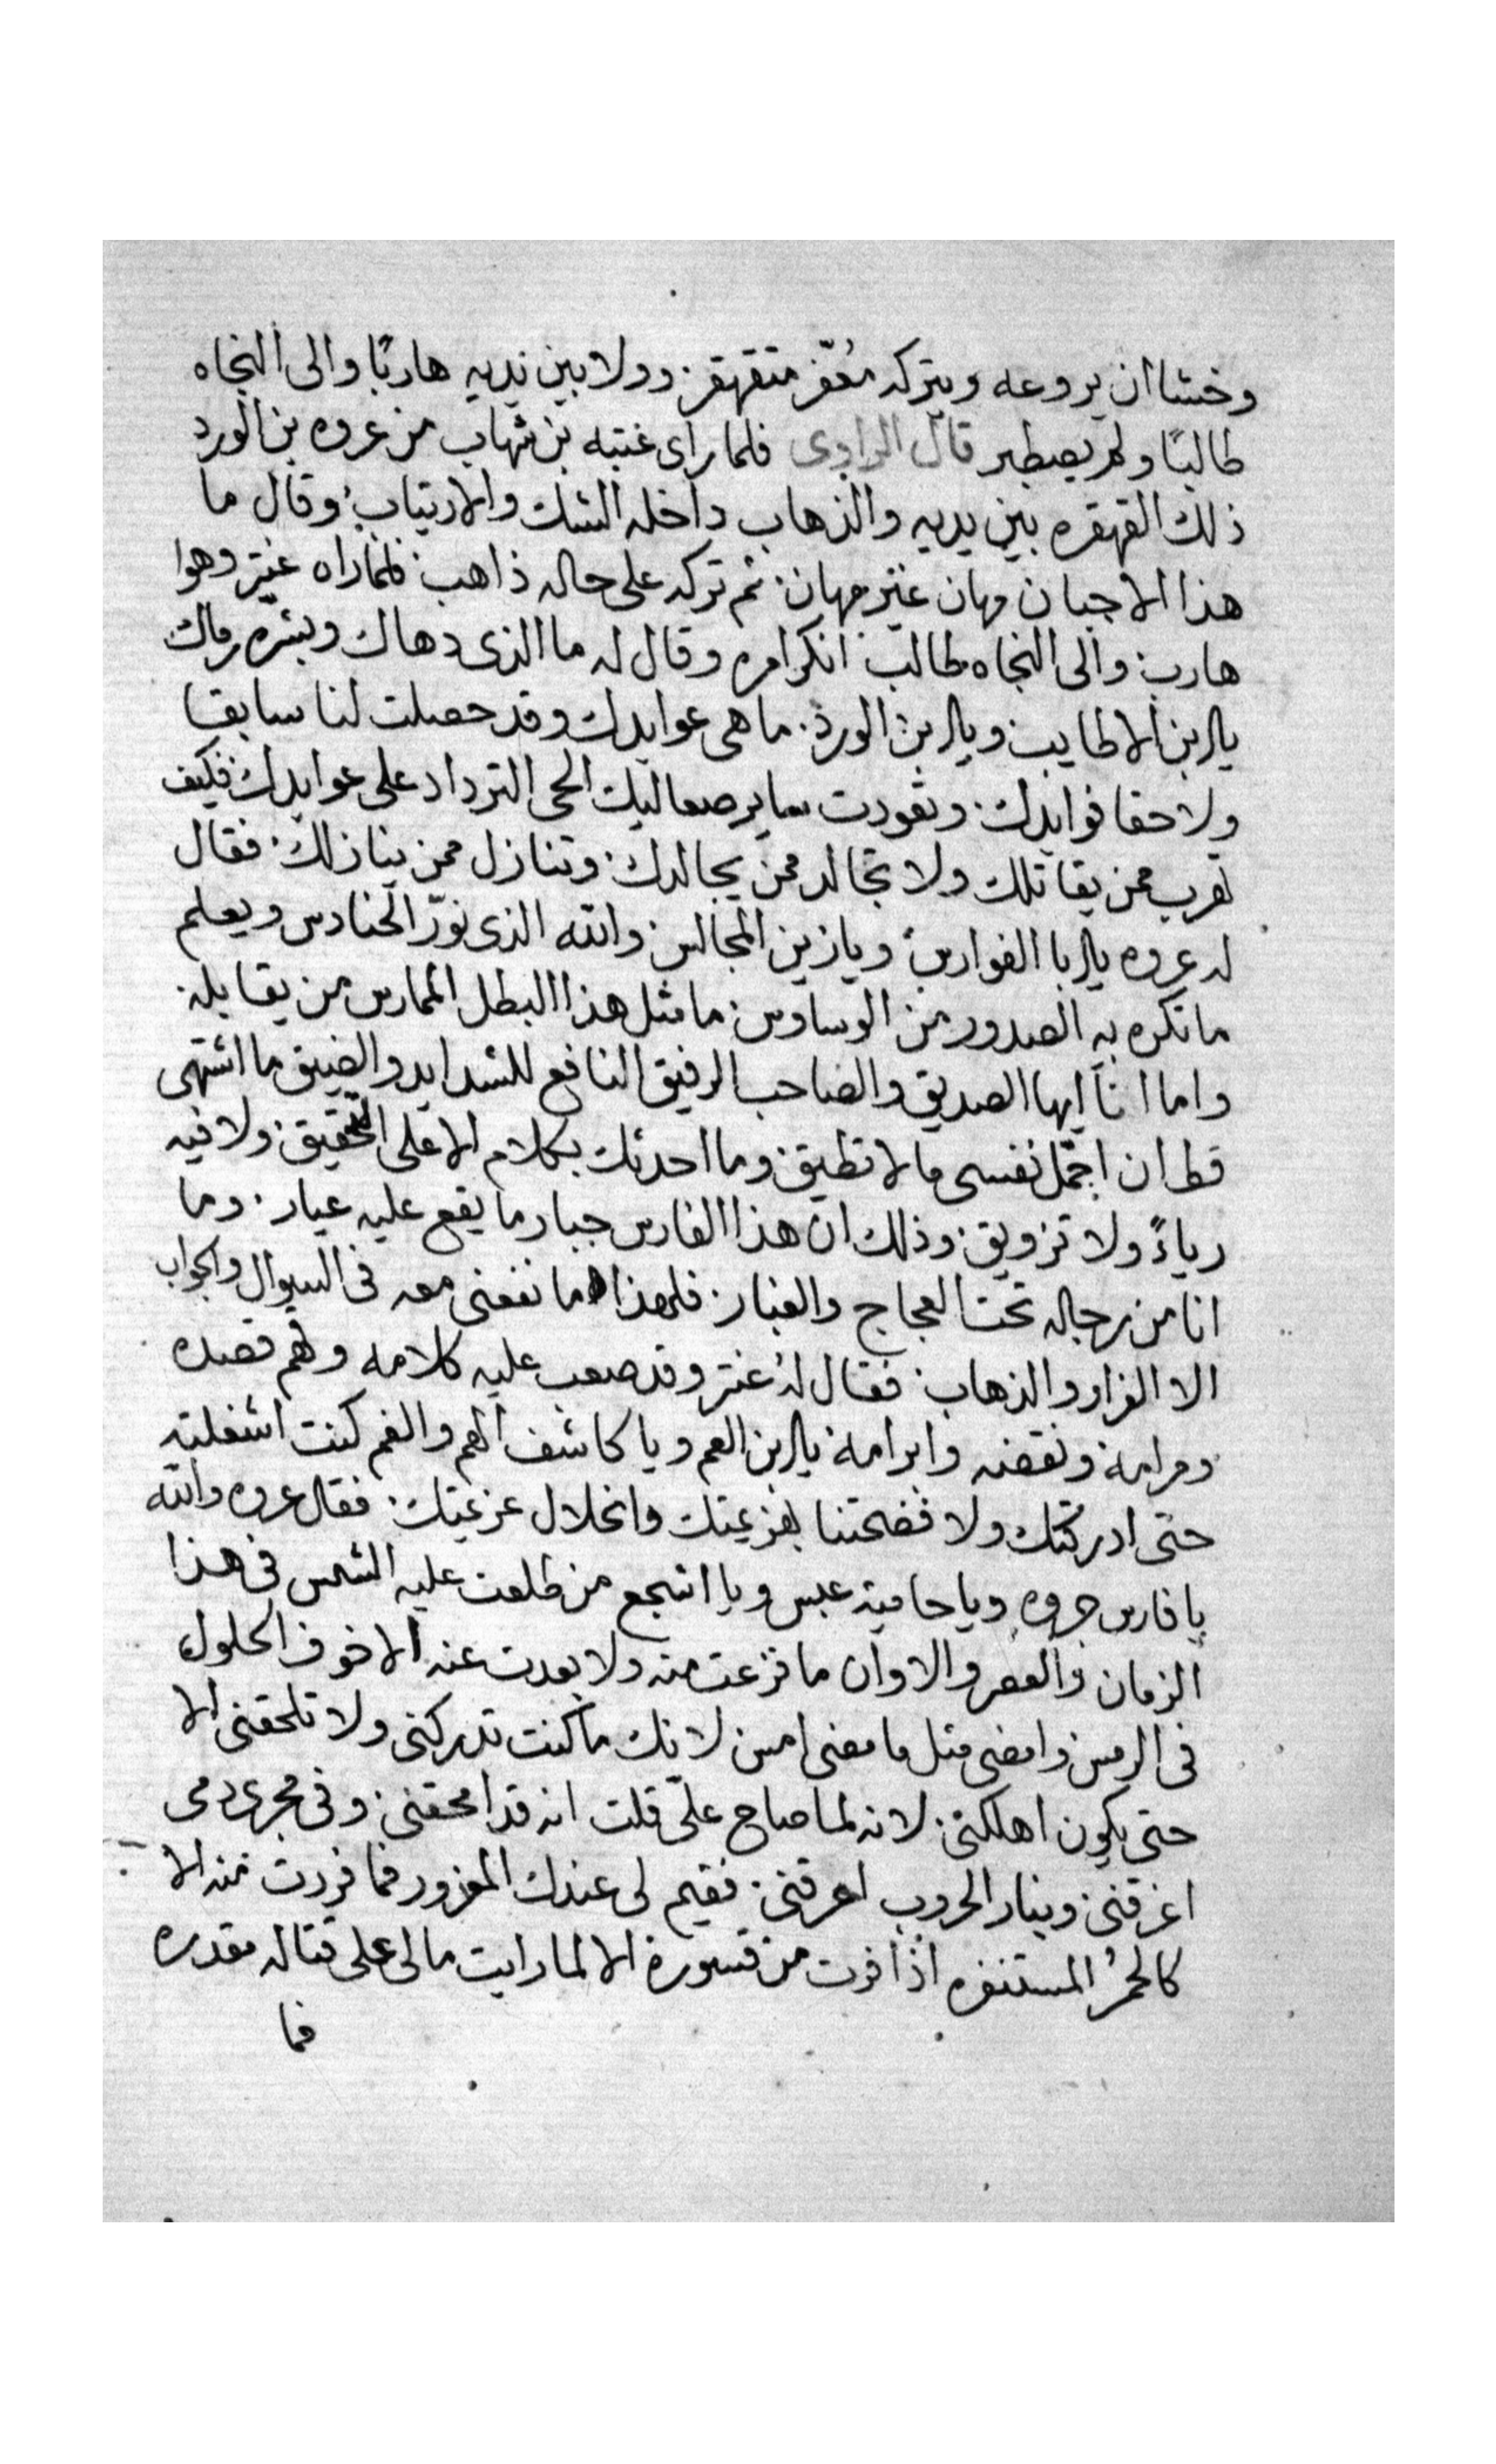 وخشا ان يروعه ويتركه معفر متقهقر. وولا بين يديه هاربًا والى النجاه
طالبًا ولم يصطبر قال الراوى فلما راى عتبه بن شهاب من عروه بن الورد
ذلك القهقره بين يديه والذهاب داخله الشك والارتياب وقال ما
هذا الا جبان مهان غير مهان. ثم تركه على حاله ذاهب. فلما راه عنتر وهوا
هارب والى النجاه طالب. انكر امره وقال له ما الذى دهاك وبشره رماك
يا ابن الاطايب ويا ابن الورد. ما هى عوايدك وقد حصلت لنا سابقا
ولاحقا فوايدك. وتعودت اليك الحى الترداد على عوايدك فكيف
تهرب ممن يقاتلك ولا تجالد ممن يجالدك. وتنازل ممن ينازلك. فقال
له عروه يا ابا الفوارس ويا زين المجالس. والله الذى نوّر الحنادس ويعلم
ما تكره به الصدور من الوساوس. ما مثل هذا البطل الممارس من يقابله.
واما انا ايها الصديق والصاحب الرفيق النافع للشدايد والضيق ما اشتهى
قط ان احمّل نفسى ما لا تطيق. وما احدثك بكلام الا على التحقيق. ولا فيه
رياءً ولا تزويق. وذلك ان هذا الفارس جبار ما يقع عليه عيار. وما
انا من رجاله تحت العجاج والغبار. فلهذا ما نفعنى معه فى السوال والجواب
الا الفرار والذهاب. فقال له عنتر وقد صعب عليه كلامه وفهم قصده
ومرامه ونقضه وابرامه يا ابن العم ويا كاشف الهم والغم كنت اشغلته
حتى ادركتك ولا فضحتنا بهزيمتك وانحلال عزيمتك. فقال عروه والله
يا فارس جروه ويا حامية عبس ويا اشجع من طلعت عليه الشمس فى هذا
الزمان والعصر والاوان ما فزعت منه ولا بعدت عنه الا خوف الحلول
فى الرمس وامضى مثل ما مضى امس لانك ما كنت تدركنى ولا تلحقنى الا
حتى يكون اهلكنى. لانه لما صاح علىّ قلت انه قد امحقنى. وفى مجرى دمى
اغرقنى. وبنار الحروب احرقنى. فقيم لى عندك المعزور فما فررت منه الا
كالحمُر المستنفره اذا فرت من قسورة الا لما رايت مالى على قتاله مقدره
فما